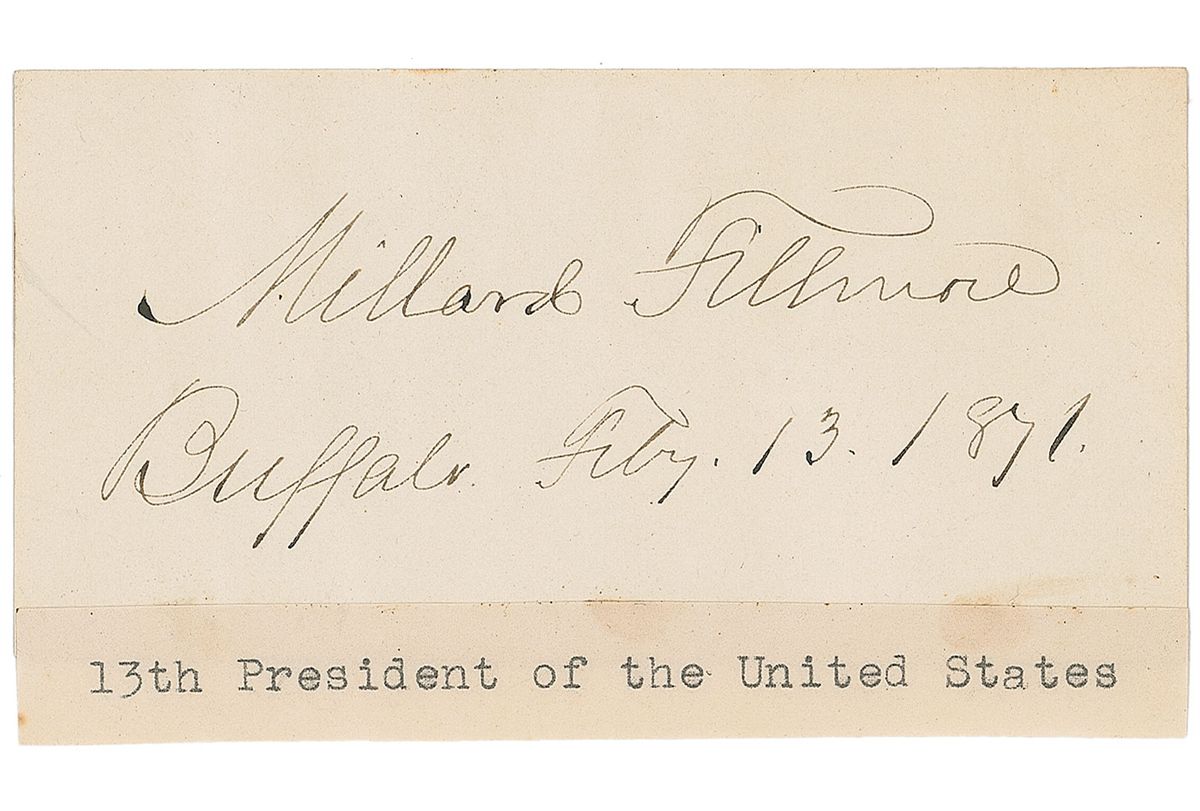 Millard Fillmore
Buffalo. Feby. 13. 1871.
13th President of the United States